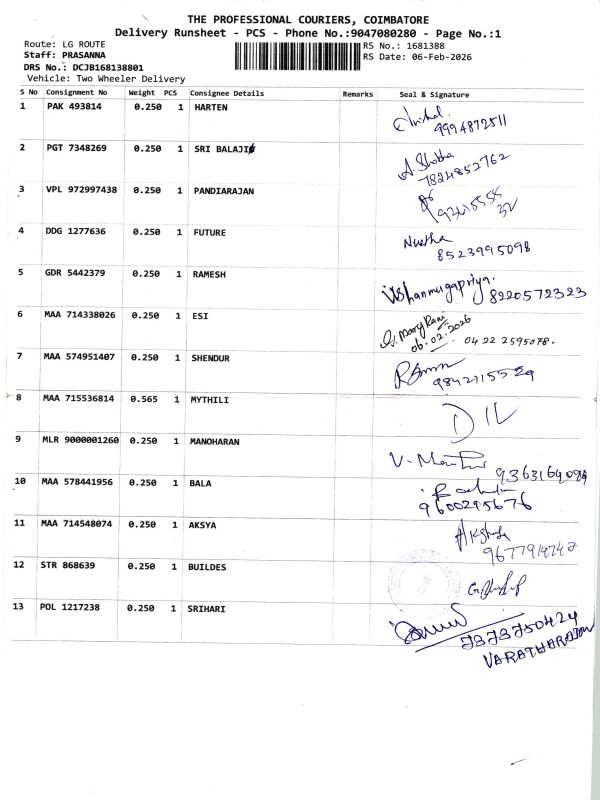 THE PROFESSIONAL COURIERS, COIMBATORE
Delivery Runsheet - PCS - Phone No.:9047080280 - Page No.:1
Route: LG ROUTE
RS No.: 1681388
Staff: PRASANNA
RS Date: 06-Feb-2026
DRS No.: DCJB168138801
Vehicle: Two Wheeler Delivery
S No Consignment No Weight PCS Consignee Details Remarks Seal & Signature
1 PAK 493814 0.250 1 HARTEN
9994872511
2 PGT 7348269 0.250 1 SRI BALAJI
A. Shobha
7824852762
3 VPL 972997438 0.250 1 PANDIARAJAN
4 DDG 1277636 0.250 1 FUTURE
8523995098
5 GDR 5442379 0.250 1 RAMESH
Shanmugapriya. 8220572323
6 MAA 714338026 0.250 1 ESI
Mary Rani
06.02.2026
0422 2595078.
7 MAA 574951407 0.250 1 SHENDUR
8 MAA 715536814 0.565 1 MYTHILI
D I L
9 MLR 9000001260 0.250 1 MANOHARAN
10 MAA 578441956 0.250 1 BALA
9600295676
11 MAA 714548074 0.250 1 AKSYA
12 STR 868639 0.250 1 BUILDES
13 POL 1217238 0.250 1 SRIHARI
7373750424
VARATHARAJAN